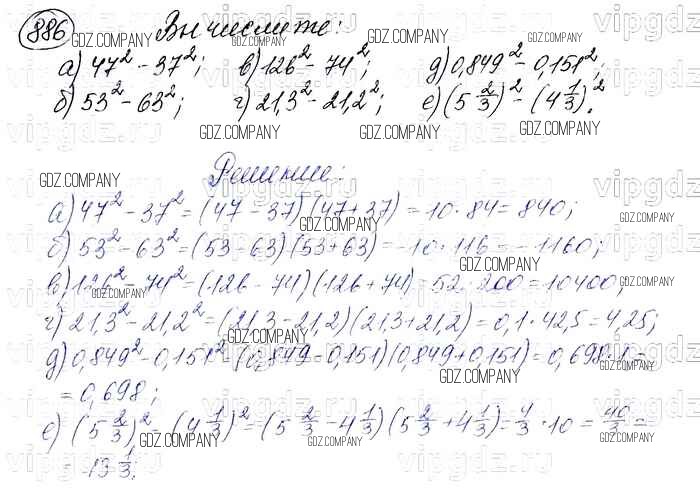 886 Вычислите:
а) 47² - 37²; в) 126² - 74²; д) 0,849² - 0,151²;
б) 53² - 63²; г) 21,3² - 21,2²; е) (5 2/3)² - (4 1/3)².
Решение:
а) 47² - 37² = (47 - 37)(47 + 37) = 10 · 84 = 840;
б) 53² - 63² = (53 - 63)(53 + 63) = -10 · 116 = -1160;
в) 126² - 74² = (126 - 74)(126 + 74) = 52 · 200 = 10400;
г) 21,3² - 21,2² = (21,3 - 21,2)(21,3 + 21,2) = 0,1 · 42,5 = 4,25;
д) 0,849² - 0,151² = (0,849 - 0,151)(0,849 + 0,151) = 0,698 · 1 =
= 0,698;
е) (5 2/3)² - (4 1/3)² = (5 2/3 - 4 1/3)(5 2/3 + 4 1/3) = 4/3 · 10 = 40/3 =
= 13 1/3.
GDZ.COMPANY
vipgdz